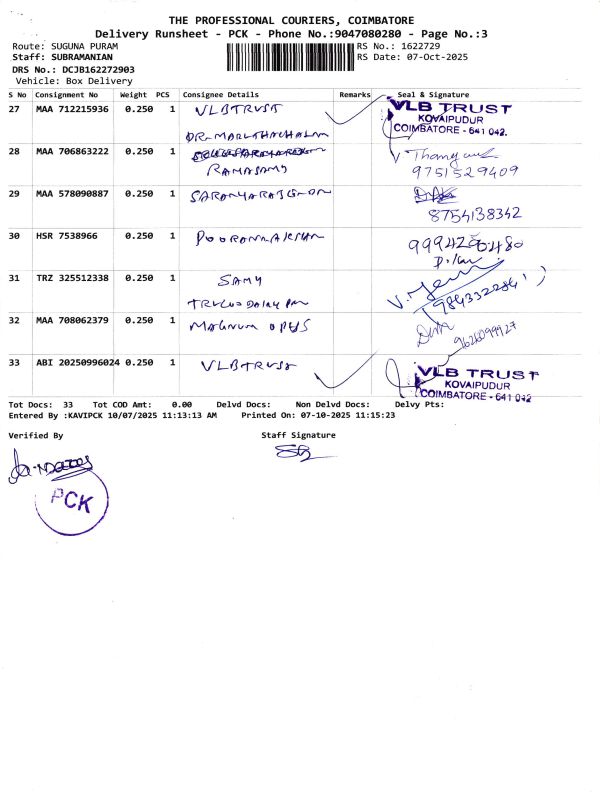 THE PROFESSIONAL COURIERS, COIMBATORE
Delivery Runsheet - PCK - Phone No.:9047080280 - Page No.:3
Route: SUGUNA PURAM RS No.: 1622729
Staff: SUBRAMANIAN RS Date: 07-Oct-2025
DRS No.: DCJB162272903
Vehicle: Box Delivery
S No Consignment No Weight PCS Consignee Details Remarks Seal & Signature
27 MAA 712215936 0.250 1 VLBTRUST VLB TRUST
KOVAIPUDUR
COIMBATORE - 641 042.
28 MAA 706863222 0.250 1
RAMASAMY 9751529409
29 MAA 578090887 0.250 1
8754138342
30 HSR 7538966 0.250 1
31 TRZ 325512338 0.250 1 SAMY
32 MAA 708062379 0.250 1 MAGNUM OPUS
33 ABI 20250996024 0.250 1 VLBTRUST VLB TRUST
KOVAIPUDUR
COIMBATORE - 641 042
Tot Docs: 33 Tot COD Amt: 0.00 Delvd Docs: Non Delvd Docs: Delvy Pts:
Entered By :KAVIPCK 10/07/2025 11:13:13 AM Printed On: 07-10-2025 11:15:23
Verified By Staff Signature
PCK